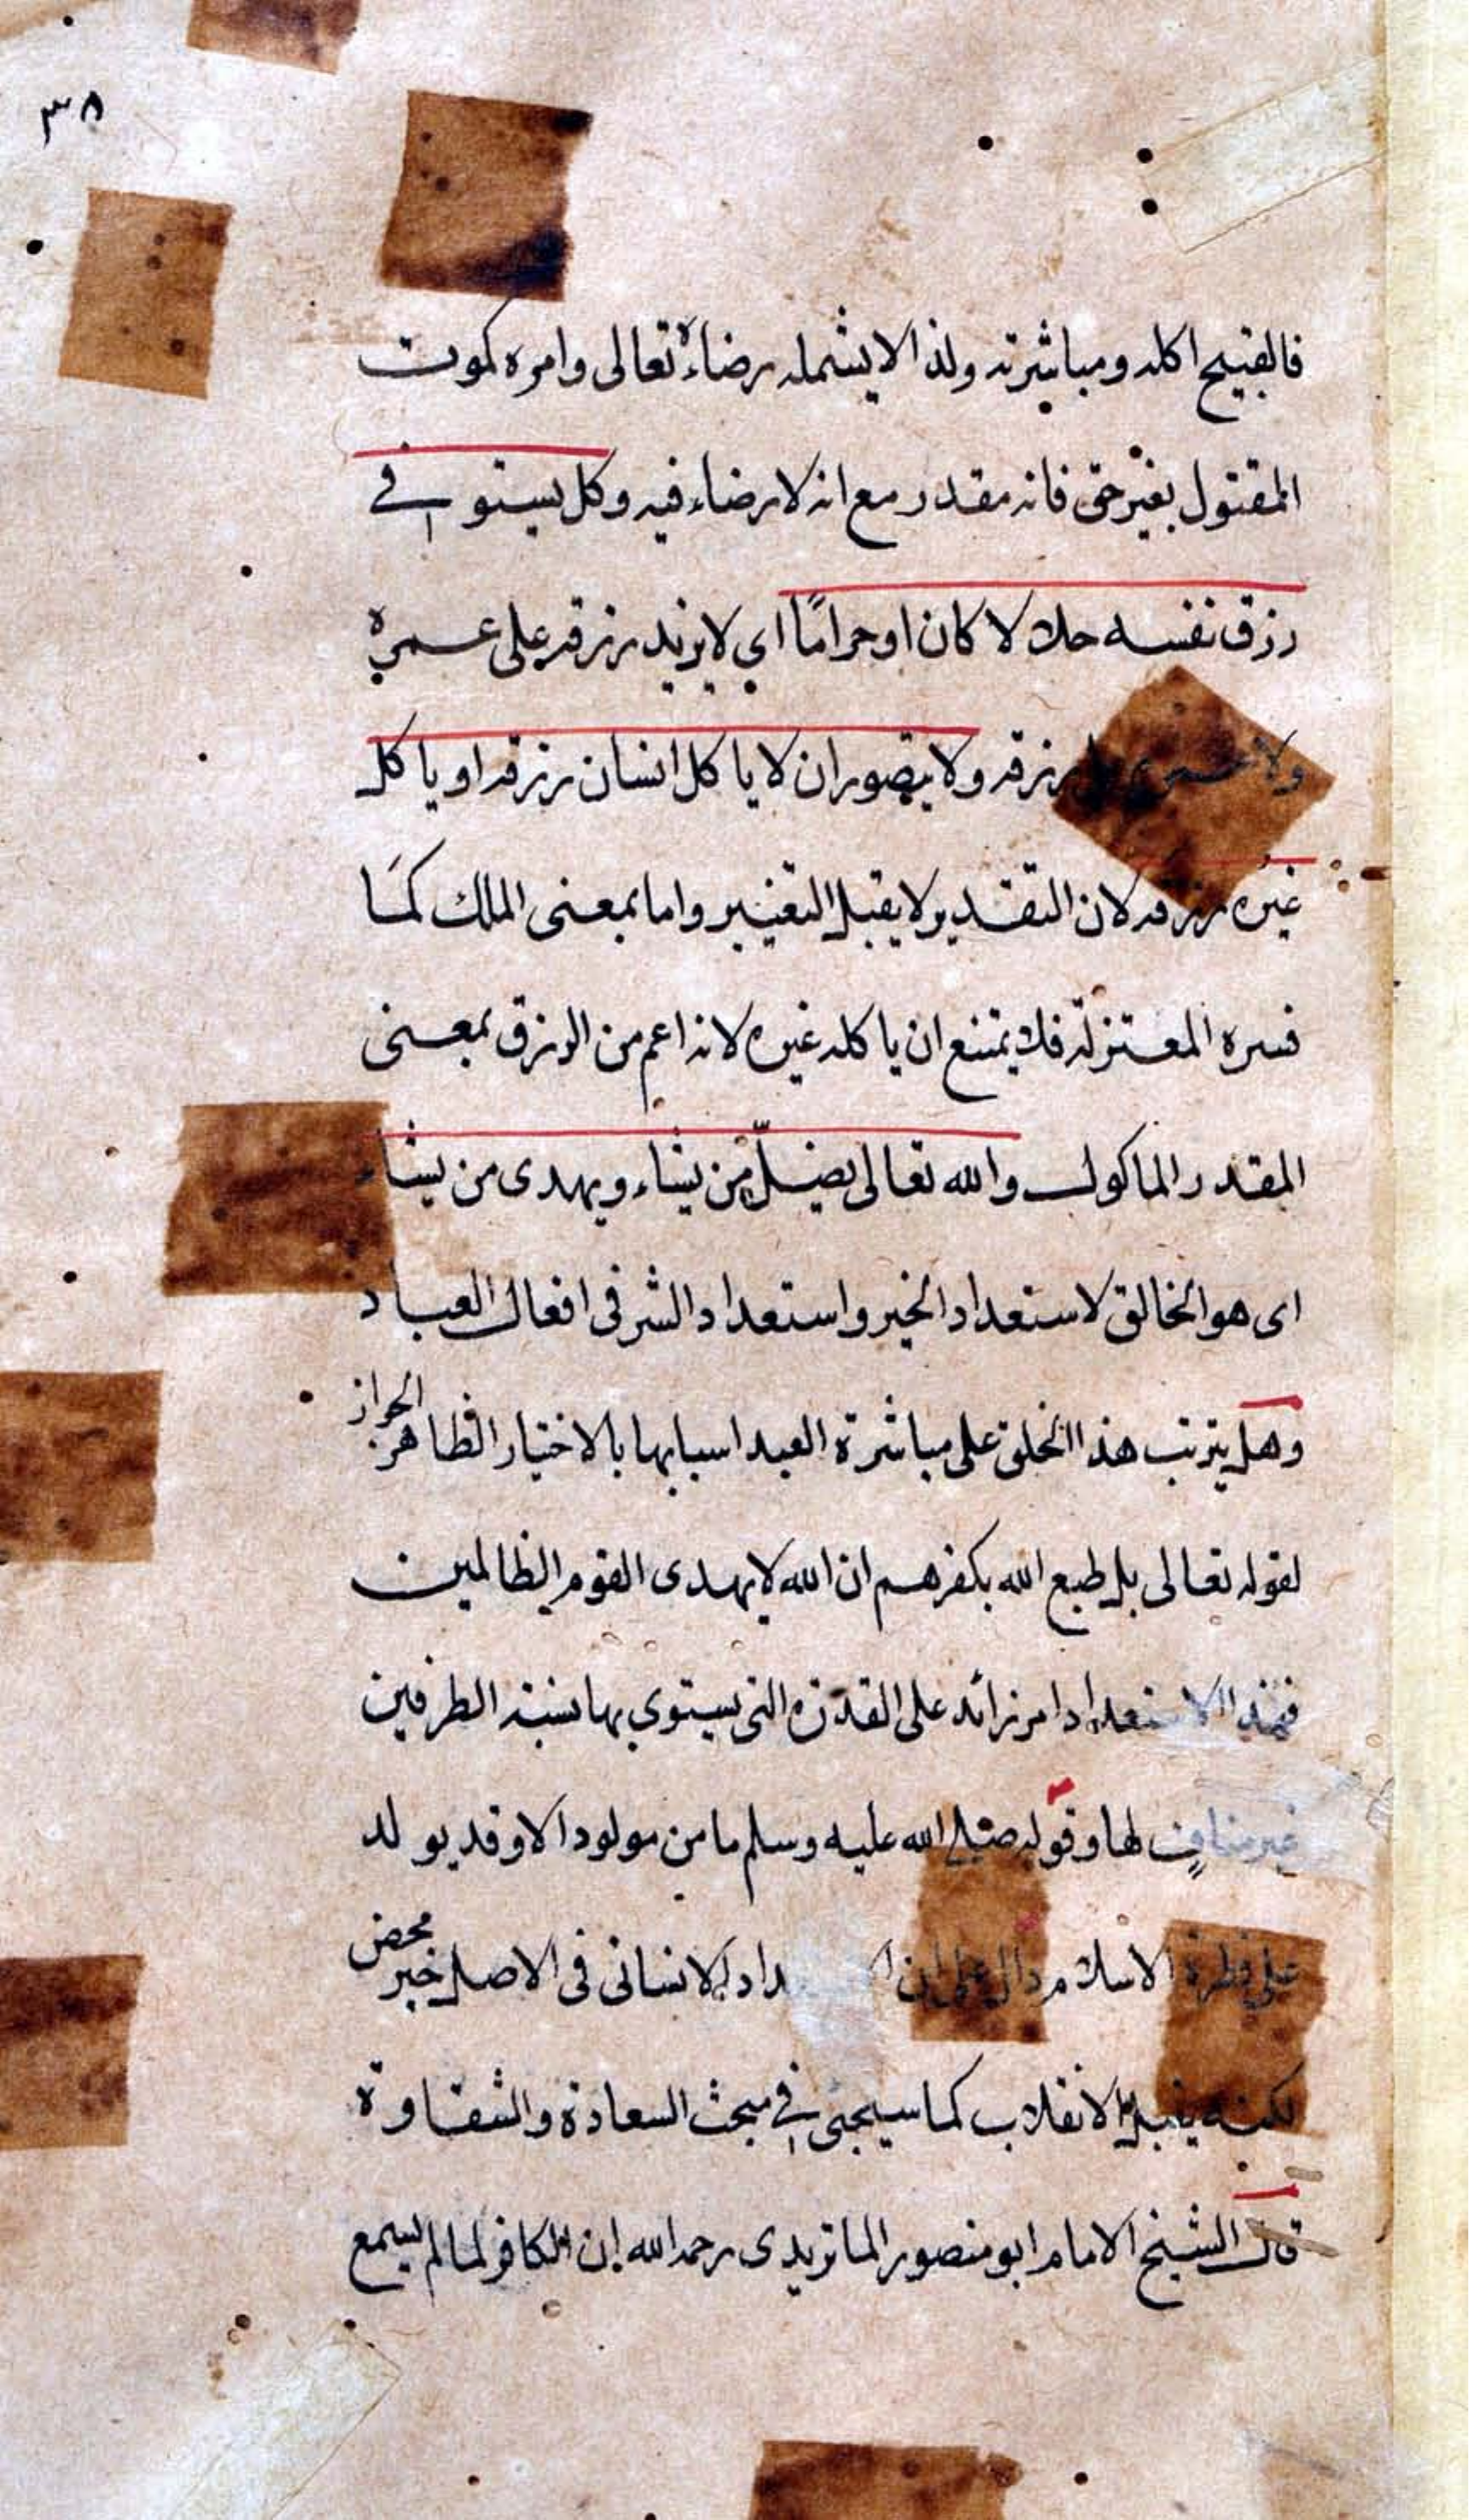 ٣٨
فالقبيح اكله ومباشرته ولذا لا يشمله رضاءه تعالى وامره كموت
المقتول بغير حق فانه مقدر مع انه لا رضاء فيه وكل يستوفي
رزق نفسه حلالا كان او حرامًا اي لا يزيد رزقه على عمره
ولا عمره على رزقه ولا يتصور ان لا ياكل انسان رزقه او ياكل
غيره رزقه لان التقدير لا يقبل التغيير واما بمعنى الملك كما
فسره المعتزلة فلا يمتنع ان ياكله غيره لانه اعم من الرزق بمعنى
المقدر الماكول والله تعالى يضلّ من يشاء ويهدى من يشاء
اى هو الخالق لاستعداد الخير واستعداد الشر فى افعال العباد
وهل يترتب هذا الخلق على مباشرة العبد اسبابها بالاختيار الظاهر الجواز
لقوله تعالى بل طبع الله بكفرهم ان الله لا يهدى القوم الظالمين
فهذا الاستعداد امر زائد على القدرة التى يستوي بها نسبة الطرفين
غير مناف لها وقوله صلى الله عليه وسلم ما من مولود الا وقد يولد
على فطرة الاسلام دال على ان الانسانى فى الاصل خير محض
لكنه يقبل الانقلاب كما سيجئ في مبحث السعادة والشقاوة
قال الشيخ الامام ابو منصور الماتريدى رحمه الله ان الكافر لما لم يسمع